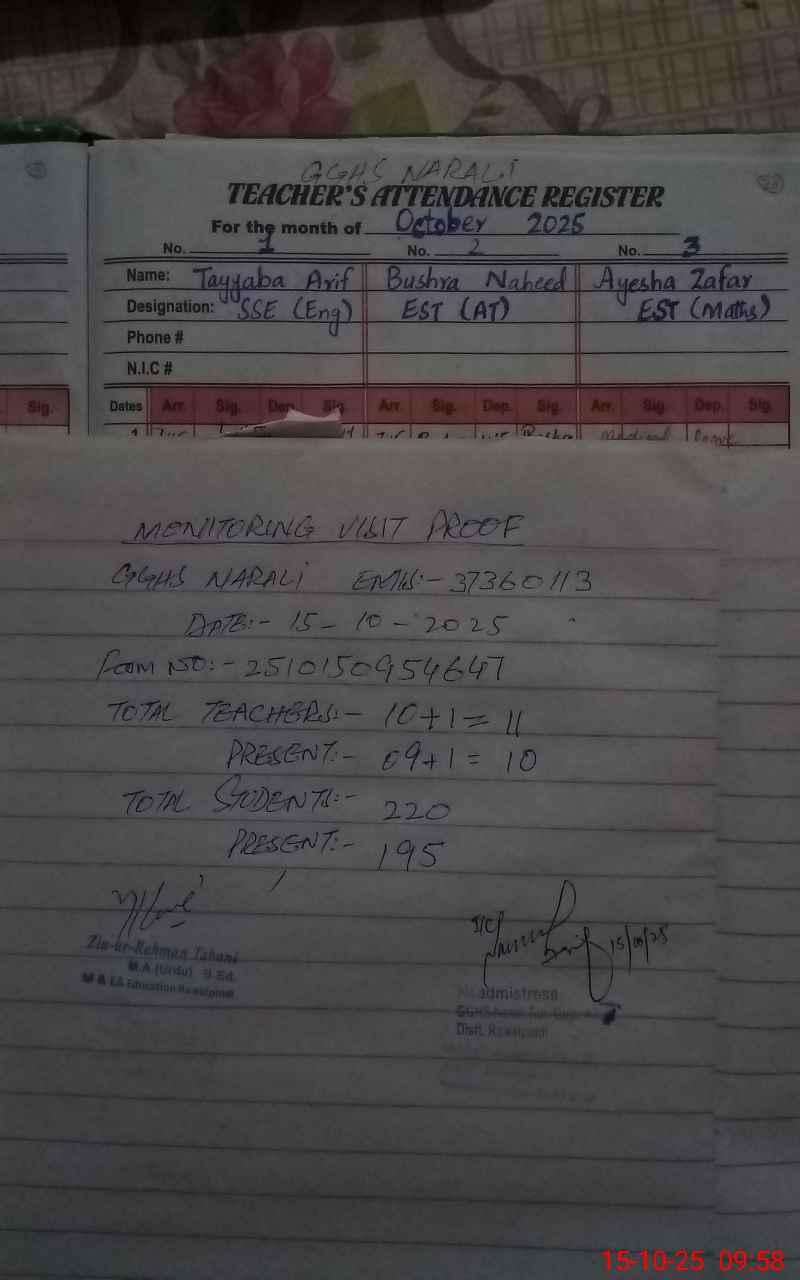 GGHS NARALI
TEACHER'S ATTENDANCE REGISTER
For the month of October 2025
No. 1 No. 2 No. 3
Name: Tayyaba Arif Bushra Naheed Ayesha Zafar
Designation: SSE (Eng) EST (AT) EST (Maths)
Phone #
N.I.C #
Sig. Dates Arr. Sig. Dep. Sig. Arr. Sig. Dep. Sig. Arr. Sig. Dep. Sig.
1 Medical Leave
MONITORING VISIT PROOF
GGHS NARALI EMIS:- 37360113
DATE:- 15-10-2025
FORM NO:- 2510150954647
TOTAL TEACHERS:- 10+1= 11
PRESENT:- 09+1= 10
TOTAL STUDENTS:- 220
PRESENT:- 195
I/C 15/10/25
Zia-ur-Rehman Tabani
M.A (Urdu) B.Ed.
M & EA Education Rawalpindi
Headmistress
GGHS Narali
Distt. Rawalpindi
15-10-25 09:58